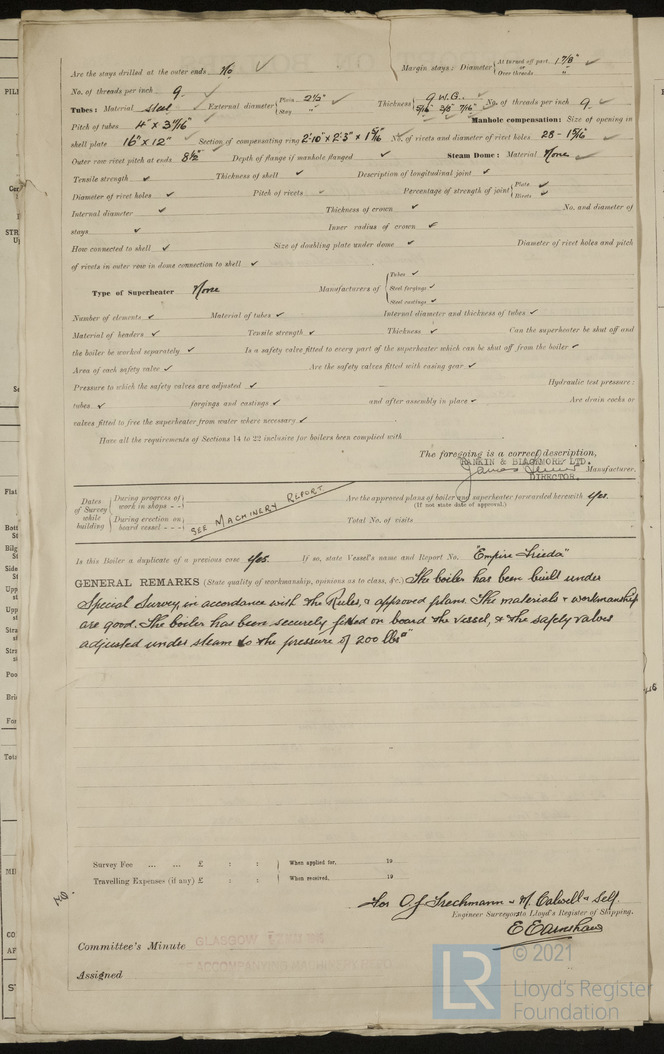 Are the stays drilled at the outer ends No ✓ Margin stays: Diameter { At turned off part, 1 7/8" ✓ or Over threads "
No. of threads per inch 9 ✓
Tubes: Material Steel ✓ External diameter { Plain 2 1/2" ✓ Stay " Thickness { 9 W.G. ✓ 5/16" 3/8" 7/16" No. of threads per inch 9 ✓
Pitch of tubes 4" x 3 11/16" Manhole compensation: Size of opening in
shell plate 16" x 12" Section of compensating ring 2'-10" x 2'-3" x 1 5/16" No. of rivets and diameter of rivet holes 28 - 1 5/16 ✓
Outer row rivet pitch at ends 8 1/2" Depth of flange if manhole flanged ✓ Steam Dome: Material None ✓
Tensile strength ✓ Thickness of shell ✓ Description of longitudinal joint ✓
Diameter of rivet holes ✓ Pitch of rivets ✓ Percentage of strength of joint { Plate ✓ Rivets ✓
Internal diameter ✓ Thickness of crown ✓ No. and diameter of
stays ✓ Inner radius of crown ✓
How connected to shell ✓ Size of doubling plate under dome ✓ Diameter of rivet holes and pitch
of rivets in outer row in dome connection to shell ✓
Type of Superheater None Manufacturers of { Tubes ✓ Steel forgings ✓ Steel castings ✓
Number of elements ✓ Material of tubes ✓ Internal diameter and thickness of tubes ✓
Material of headers ✓ Tensile strength ✓ Thickness ✓ Can the superheater be shut off and
the boiler be worked separately ✓ Is a safety valve fitted to every part of the superheater which can be shut off from the boiler ✓
Area of each safety valve ✓ Are the safety valves fitted with easing gear ✓
Pressure to which the safety valves are adjusted ✓ Hydraulic test pressure:
tubes ✓ forgings and castings ✓ and after assembly in place ✓ Are drain cocks or
valves fitted to free the superheater from water where necessary ✓
Have all the requirements of Sections 14 to 22 inclusive for boilers been complied with
The foregoing is a correct description,
RANKIN & BLACKMORE LTD.
Manufacturer.
DIRECTOR.
Dates of Survey while building { During progress of work in shops - - { During erection on board vessel - - -
SEE MACHINERY REPORT
Are the approved plans of boiler and superheater forwarded herewith Yes.
(If not state date of approval.)
Total No. of visits
Is this Boiler a duplicate of a previous case Yes. If so, state Vessel's name and Report No. "Empire Frieda"
GENERAL REMARKS (State quality of workmanship, opinions as to class, &c.) The boiler has been built under
Special Survey, in accordance with the Rules, & approved plans. The materials & workmanship
are good. The boiler has been securely fitted on board the vessel, & the safety valves
adjusted under steam to the pressure of 200 lbs □"
Survey Fee ... ... £ : : When applied for, 19
Travelling Expenses (if any) £ : : When received, 19
For O J Trechmann & M. Calwell & Self.
Engineer Surveyor to Lloyd's Register of Shipping.
E Earnshaw
Committee's Minute GLASGOW
Assigned ACCOMPANYING MACHINERY REPORT
LR © 2021
Lloyd's Register
Foundation